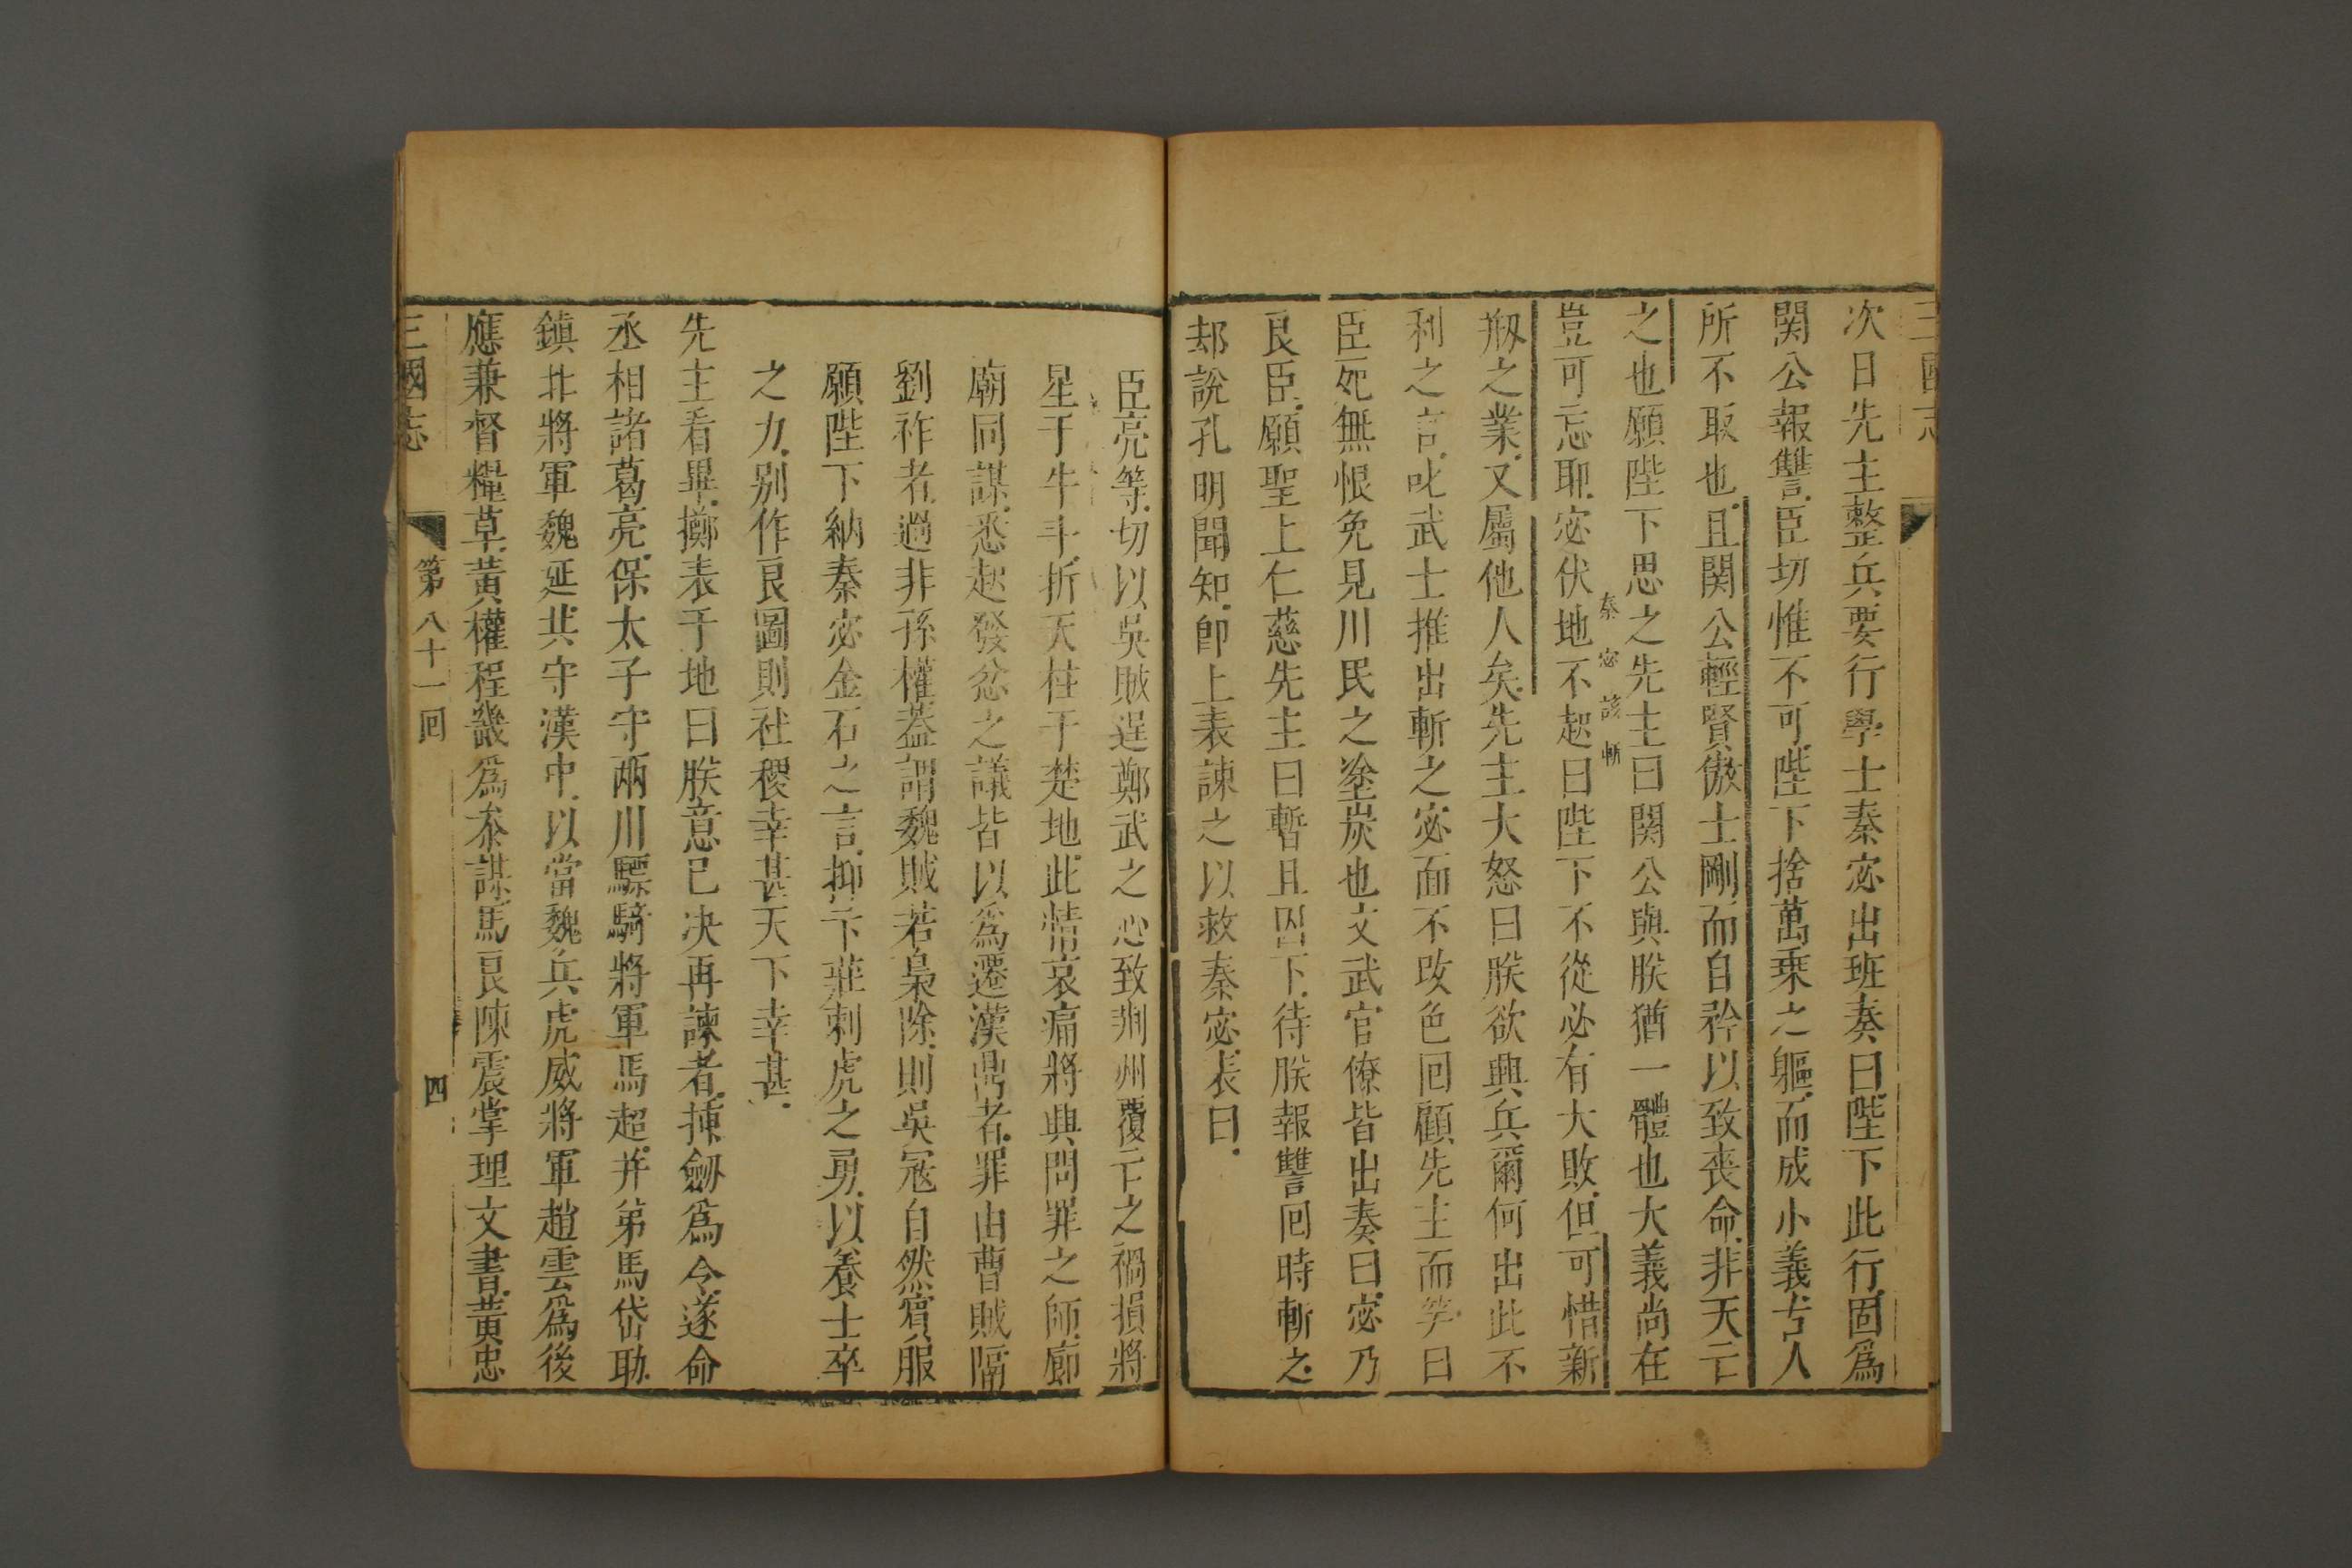 三國志
次日先主整兵要行學士秦宓出班奏曰陛下此行固爲
関公報讐臣切惟不可陛下捨萬乗之軀而成小義古人
所不取也且関公輕賢傲士剛而自矜以致丧命非天亡
之也願陛下思之先主曰関公與朕猶一體也大義尚在
豈可忘耶宓伏地不起曰陛下不從必有大敗但可惜新
秦宓該斬
剏之業又屬他人矣先主大怒曰朕欲興兵爾何出此不
利之言叱武士推出斬之宓面不改色回顧先主而笑曰
臣死無恨免見川民之塗炭也文武官僚皆出奏曰宓乃
良臣願聖上仁慈先主曰暫且囚下待朕報讐回時斬之
却說孔明聞知卽上表諫之以救秦宓表曰
臣亮等切以吳賊逞鄭武之心致荆州覆亡之禍損將
星于牛斗折天柱于楚地此情哀痛將興問罪之師廊
廟同謀悉起發忿之議皆以爲遷漢鼎者罪由曹賊隔
劉祚者過非孫權葢謂魏賊若梟除則吳冦自然賔服
願陛下納秦宓金石之言抑卞莊刺虎之勇以養士卒
之力别作良圖則社稷幸甚天下幸甚
先主看畢擲表于地曰朕意已决再諫者揷劒爲令遂命
丞相諸葛亮保太子守兩川驃騎將軍馬超并弟馬岱助
鎮北將軍魏延共守漢中以當魏兵虎威將軍趙雲爲後
應兼督糧草黃權程畿爲叅謀馬良陳震掌理文書黃忠
三國志
第八十一回
四